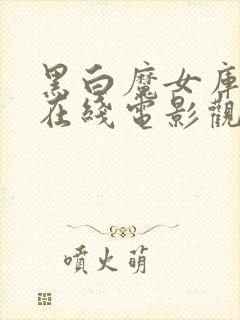 黑白魔女庫
在綫電影觀
噴火萌